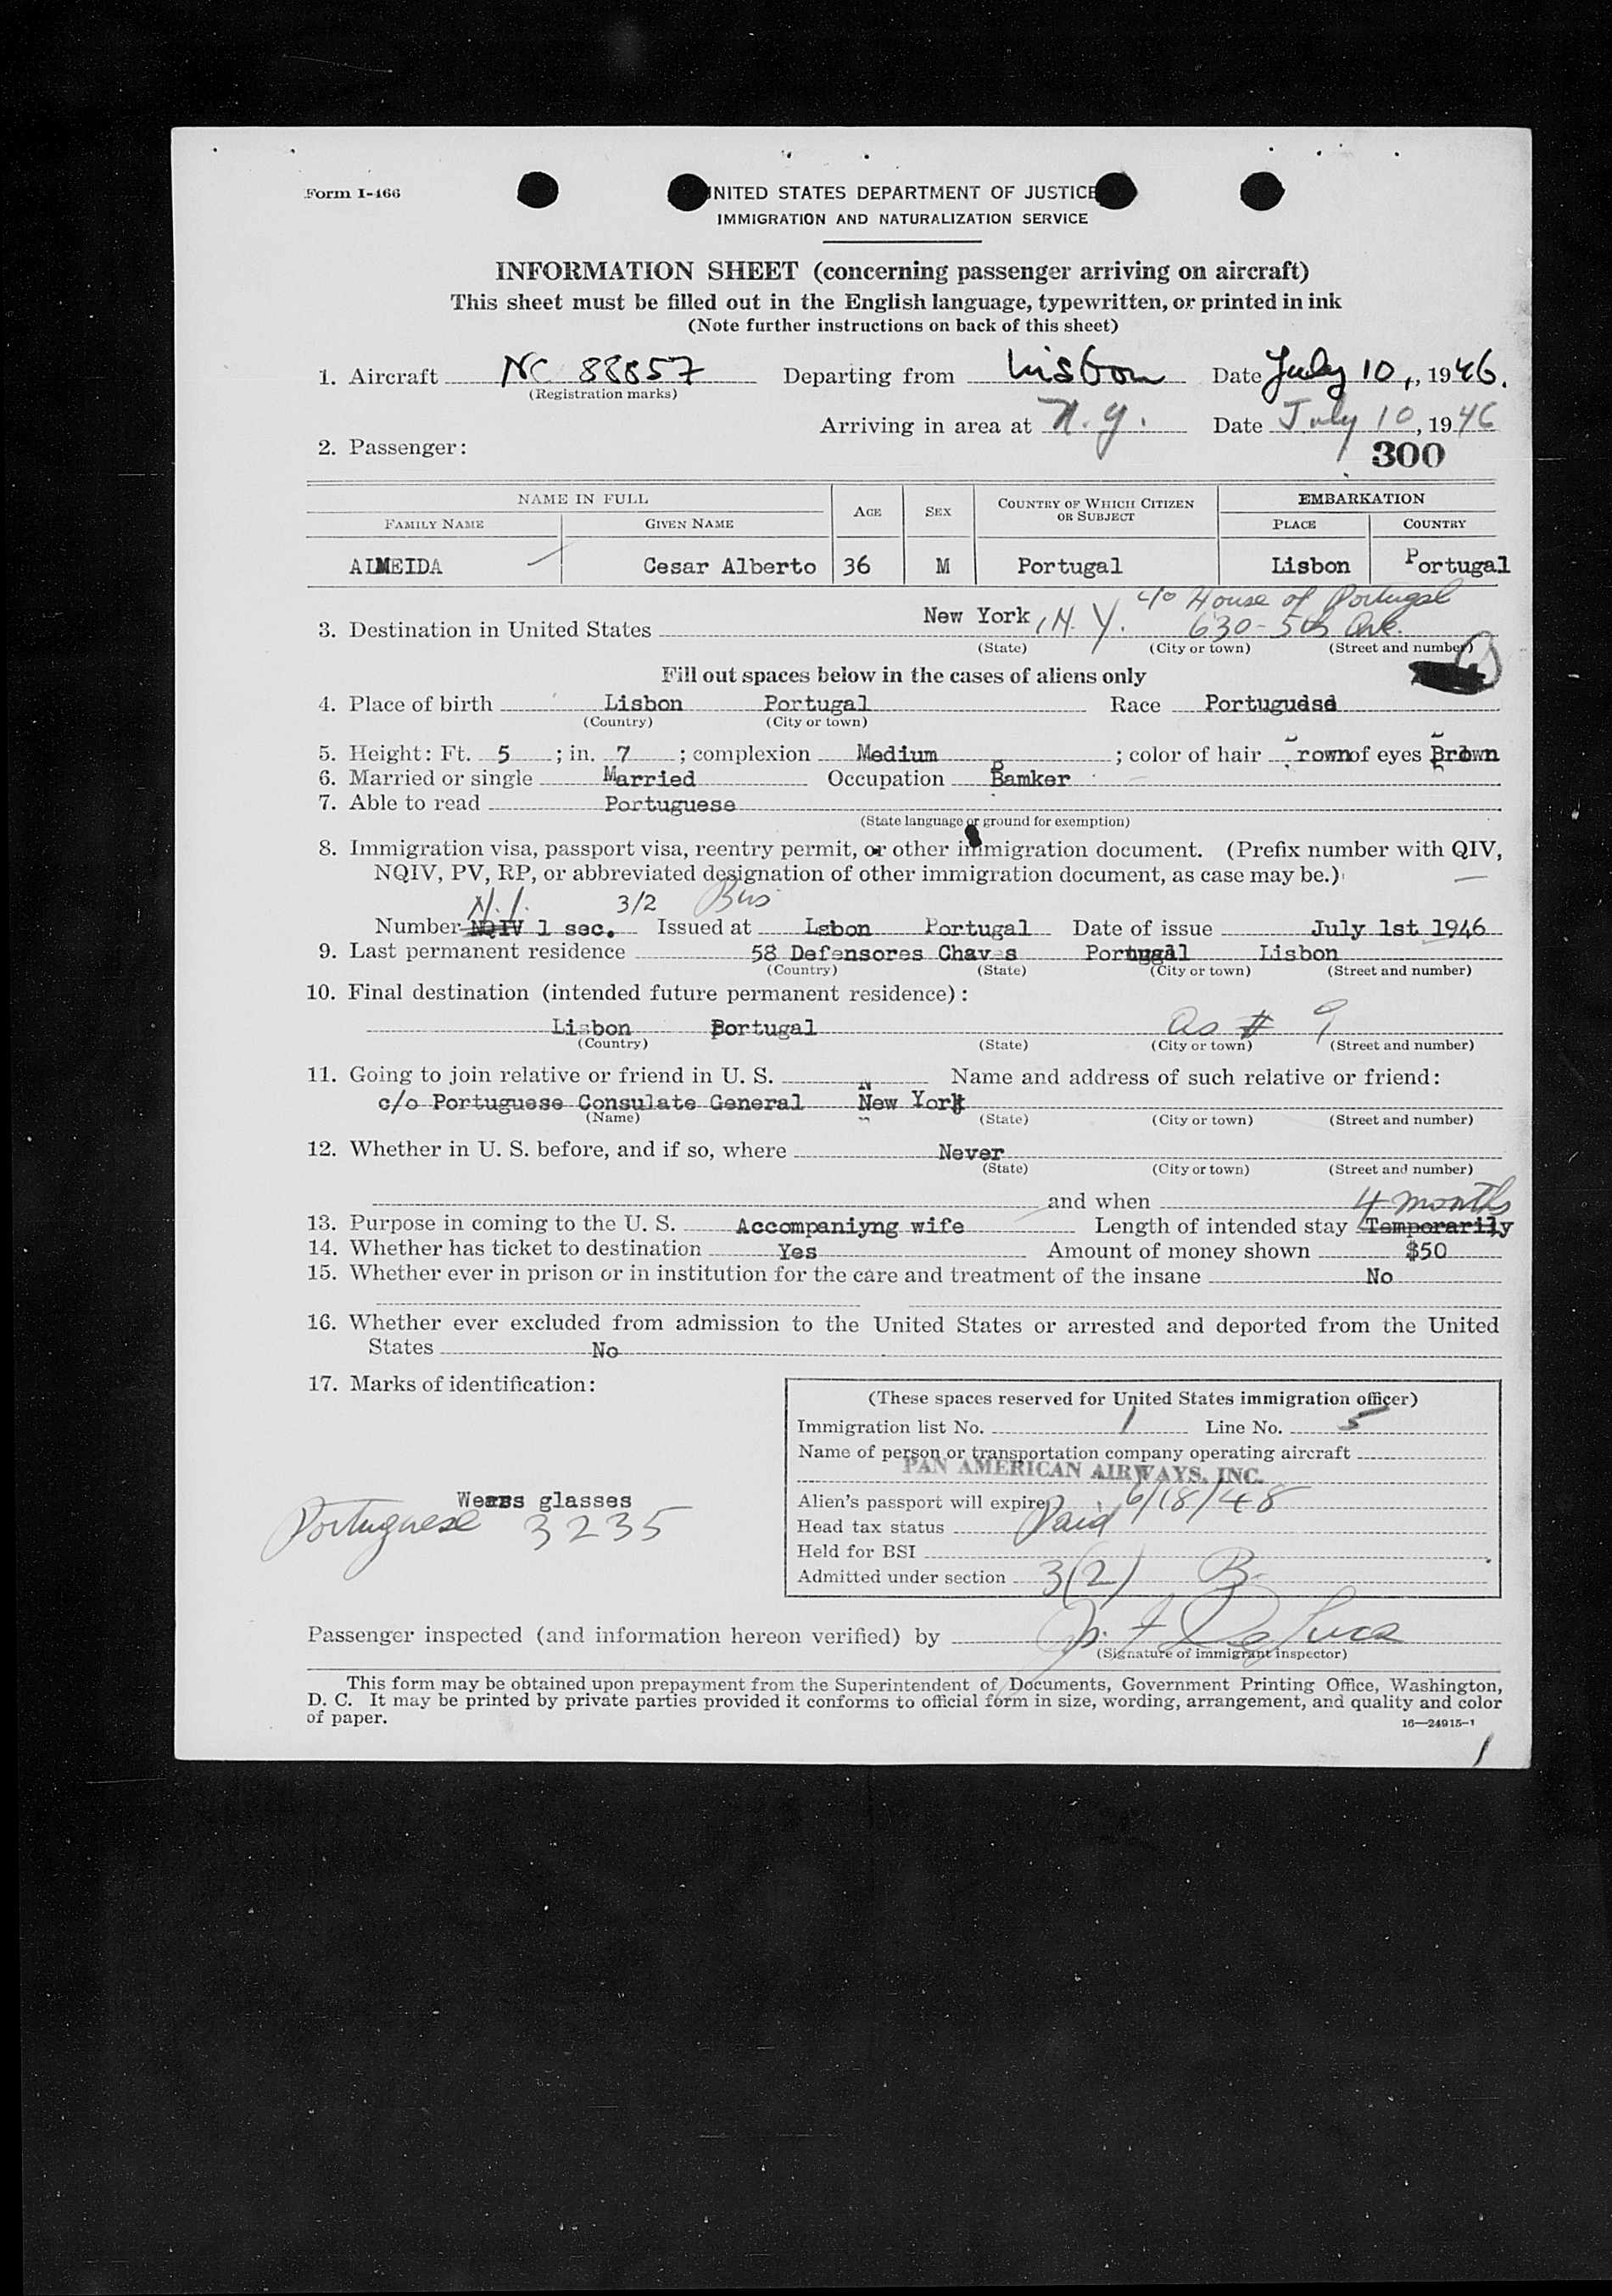 Form I-466
UNITED STATES DEPARTMENT OF JUSTICE
IMMIGRATION AND NATURALIZATION SERVICE
INFORMATION SHEET (concerning passenger arriving on aircraft)
This sheet must be filled out in the English language, typewritten, or printed in ink
(Note further instructions on back of this sheet)
1. Aircraft NC 88857 Departing from Lisbon Date July 10, 1946.
(Registration marks)
Arriving in area at N.Y. Date July 10, 1946
2. Passenger: 300
NAME IN FULL AGE SEX COUNTRY OF WHICH CITIZEN OR SUBJECT EMBARKATION
FAMILY NAME GIVEN NAME PLACE COUNTRY
ALMEIDA Cesar Alberto 36 M Portugal Lisbon Portugal
c/o House of Portugal
3. Destination in United States New York, N.Y. 630-5th Ave.
(State) (City or town) (Street and number)
Fill out spaces below in the cases of aliens only
4. Place of birth Lisbon Portugal Race Portuguese
(Country) (City or town)
5. Height: Ft. 5; in. 7; complexion Medium; color of hair rown of eyes Brown
6. Married or single Married Occupation Bamker
7. Able to read Portuguese
(State language or ground for exemption)
8. Immigration visa, passport visa, reentry permit, or other immigration document. (Prefix number with QIV,
NQIV, PV, RP, or abbreviated designation of other immigration document, as case may be.)
3/2 Bus
Number NQIV 1 sec. Issued at Lsbon Portugal Date of issue July 1st 1946
9. Last permanent residence 58 Defensores Chaves Portugal Lisbon
(Country) (State) (City or town) (Street and number)
10. Final destination (intended future permanent residence):
Lisbon Portugal as # 9
(Country) (State) (City or town) (Street and number)
11. Going to join relative or friend in U. S. Name and address of such relative or friend:
c/o Portuguese Consulate General New York
(Name) (State) (City or town) (Street and number)
12. Whether in U. S. before, and if so, where Never
(State) (City or town) (Street and number)
and when 4 months
13. Purpose in coming to the U. S. Accompaniyng wife Length of intended stay Temporarily
14. Whether has ticket to destination Yes Amount of money shown $50
15. Whether ever in prison or in institution for the care and treatment of the insane No
16. Whether ever excluded from admission to the United States or arrested and deported from the United
States No
17. Marks of identification:
Wears glasses
Portuguese 3235
(These spaces reserved for United States immigration officer)
Immigration list No. 1 Line No. 5
Name of person or transportation company operating aircraft
PAN AMERICAN AIRWAYS, INC.
Alien's passport will expire 6/18/48
Head tax status Paid
Held for BSI
Admitted under section 3(2) B.
Passenger inspected (and information hereon verified) by De Luca
(Signature of immigrant inspector)
This form may be obtained upon prepayment from the Superintendent of Documents, Government Printing Office, Washington,
D. C. It may be printed by private parties provided it conforms to official form in size, wording, arrangement, and quality and color
of paper.
16—24915-1
1